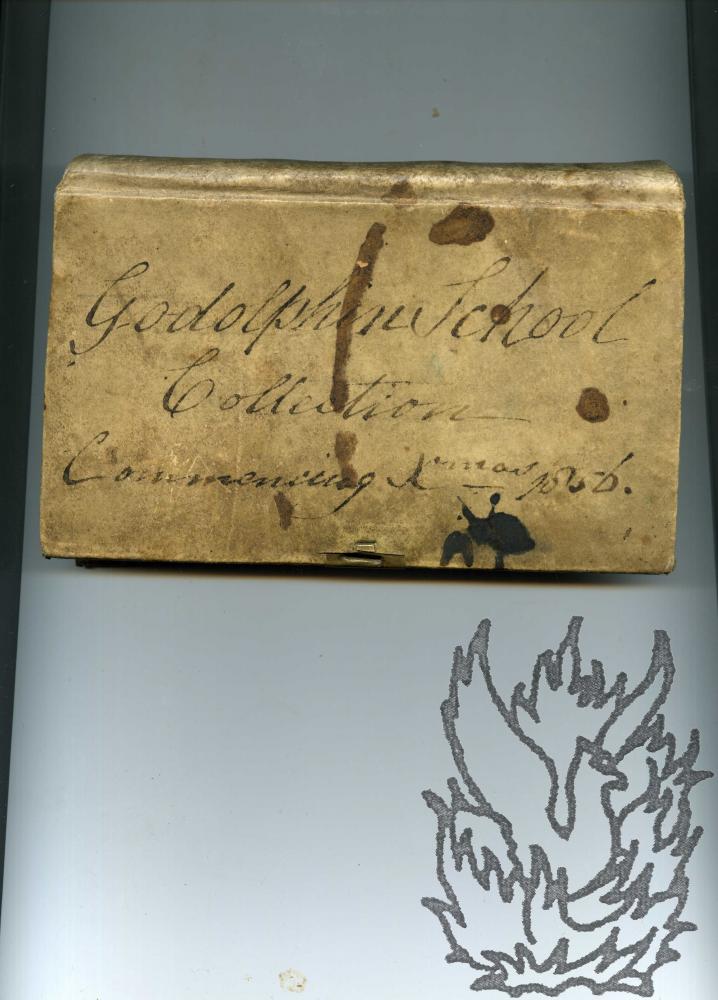 Godolphin School
Collection
Commencing Xmas 1856.